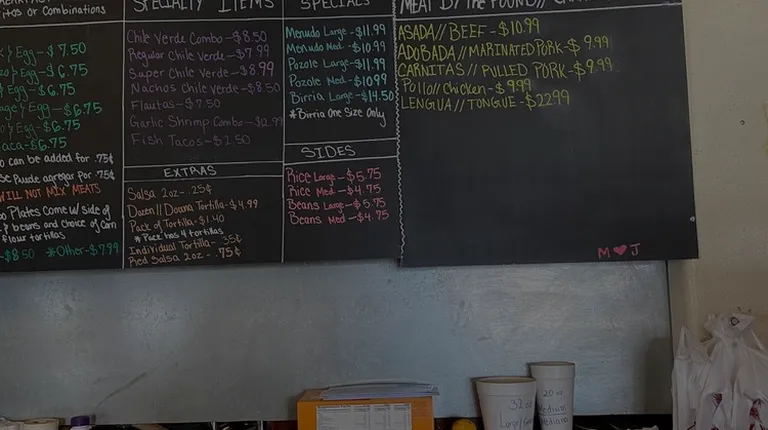 itos or Combinations
& Egg - $ 7.50
& Egg - $ 6.75
Egg - $6.75
& Egg - $6.75
- $6.75
aca - $6.75
o can be added for .75¢
se Puede agregar Por .75¢
WILL NOT MIX MEATS
Plates Come w/ side of
& beans and choice of Corn
flour tortillas
- $8.50 *Other - $7.99
SPECIALTY ITEMS
Chile Verde Combo - $8.50
Regular Chile Verde - $7.99
Super Chile Verde - $8.99
Nachos Chile Verde - $8.50
Flautas - $7.50
Garlic Shrimp Combo - $12.99
Fish Tacos - $2.50
EXTRAS
Salsa 2oz - .25¢
Dozen // Douna Tortilla - $4.99
Pack of Tortilla - $1.40
* Pack has 4 tortillas
Individual Tortilla - .35¢
Red Salsa 2oz - .75¢
SPECIALS
Menudo Large - $11.99
Menudo Med - $10.99
Pozole Large - $11.99
Pozole Med - $10.99
Birria Large - $14.50
*Birria One Size Only
SIDES
Rice Large - $5.75
Rice Med - $4.75
Beans Large - $5.75
Beans Med - $4.75
MEAT By The POUND //
ASADA // BEEF - $10.99
ADOBADA // MARINATED PORK - $ 9.99
CARNITAS // PULLED PORK - $9.99
Pollo // Chicken - $ 9.99
LENGUA // TONGUE - $22.99
M ♥ J
32oz
Large/
20oz
Medium
Mediano